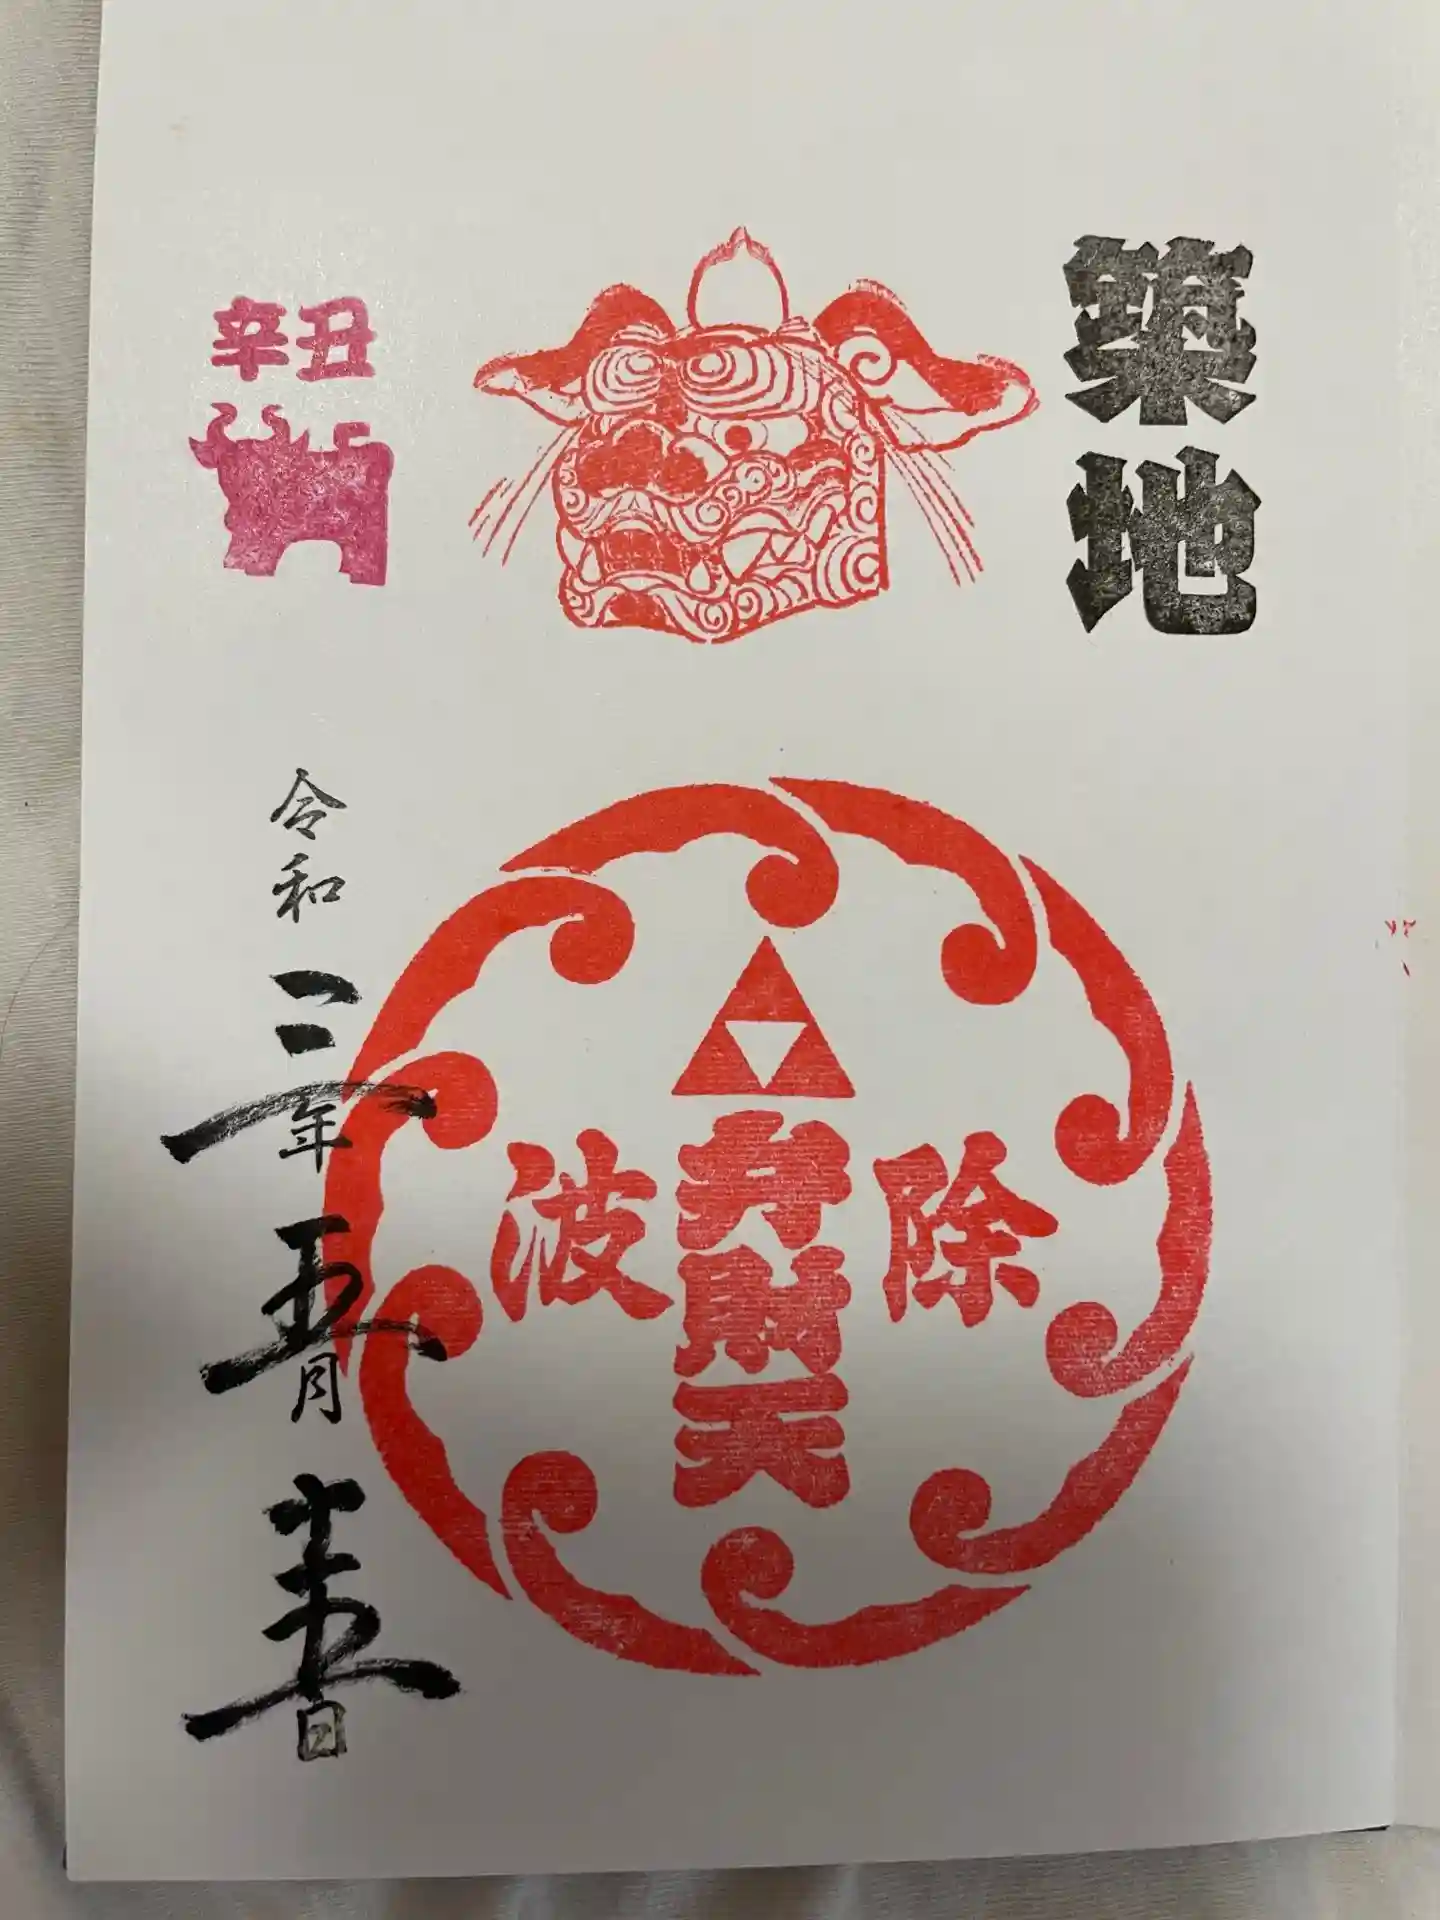 築地
除
弁財天
波
辛丑
令和三年五月十五日